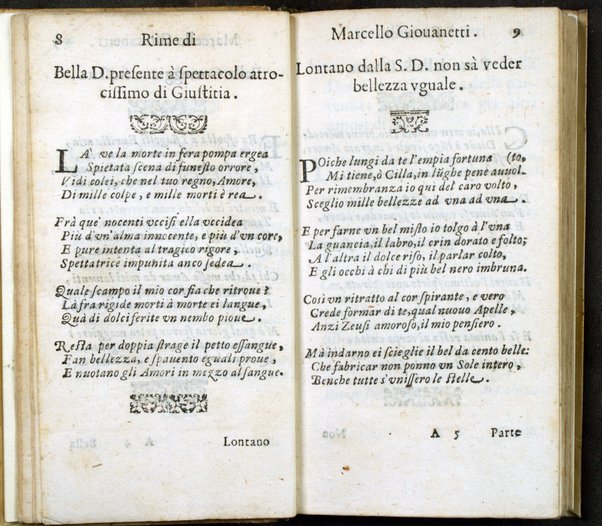 8 Rime di
Bella D. presente à spettacolo atro-
cissimo di Giustitia.
LA' ve la morte in fera pompa ergea
Spietata scena di funesto orrore,
Vidi colei, che nel tuo regno, Amore,
Di mille colpe, e mille morti è rea.
Frà que' nocenti vccisi ella vccidea
Più d'vn'alma innocente, e più d'vn core,
E pure intenta al tragico rigore,
Spettatrice impunita anco sedea.
Quale scampo il mio cor fia che ritroue?
Là fra rigide morti à morte ei langue,
Quà di dolci ferite vn nembo pioue.
Resta per doppia strage il petto essangue,
Fan bellezza, e spauento eguali proue,
E nuotano gli Amori in mezzo al sangue.
A 4 Lontano
Marcello Giouanetti. 9
Lontano dalla S. D. non sà veder
bellezza vguale.
POiche lungi da te l'empia fortuna (to,
Mi tiene, ò Cilla, in lũghe pene auuol-
Per rimembranza io qui del caro volto,
Sceglio mille bellezze ad vna ad vna.
E per farne vn bel misto io tolgo à l'vna
La guancia, il labro, il crin dorato e folto;
A l'altra il dolce riso, il parlar colto,
E gli occhi à chi di più bel nero imbruna.
Così vn ritratto al cor spirante, e vero
Crede formar di te, qual nuouo Apelle,
Anzi Zeusi amoroso, il mio pensiero.
Mà indarno ei scieglie il bel da cento belle:
Che fabricar non ponno vn Sole intero,
Benche tutte s'vnissero le stelle.
A 5 Parte